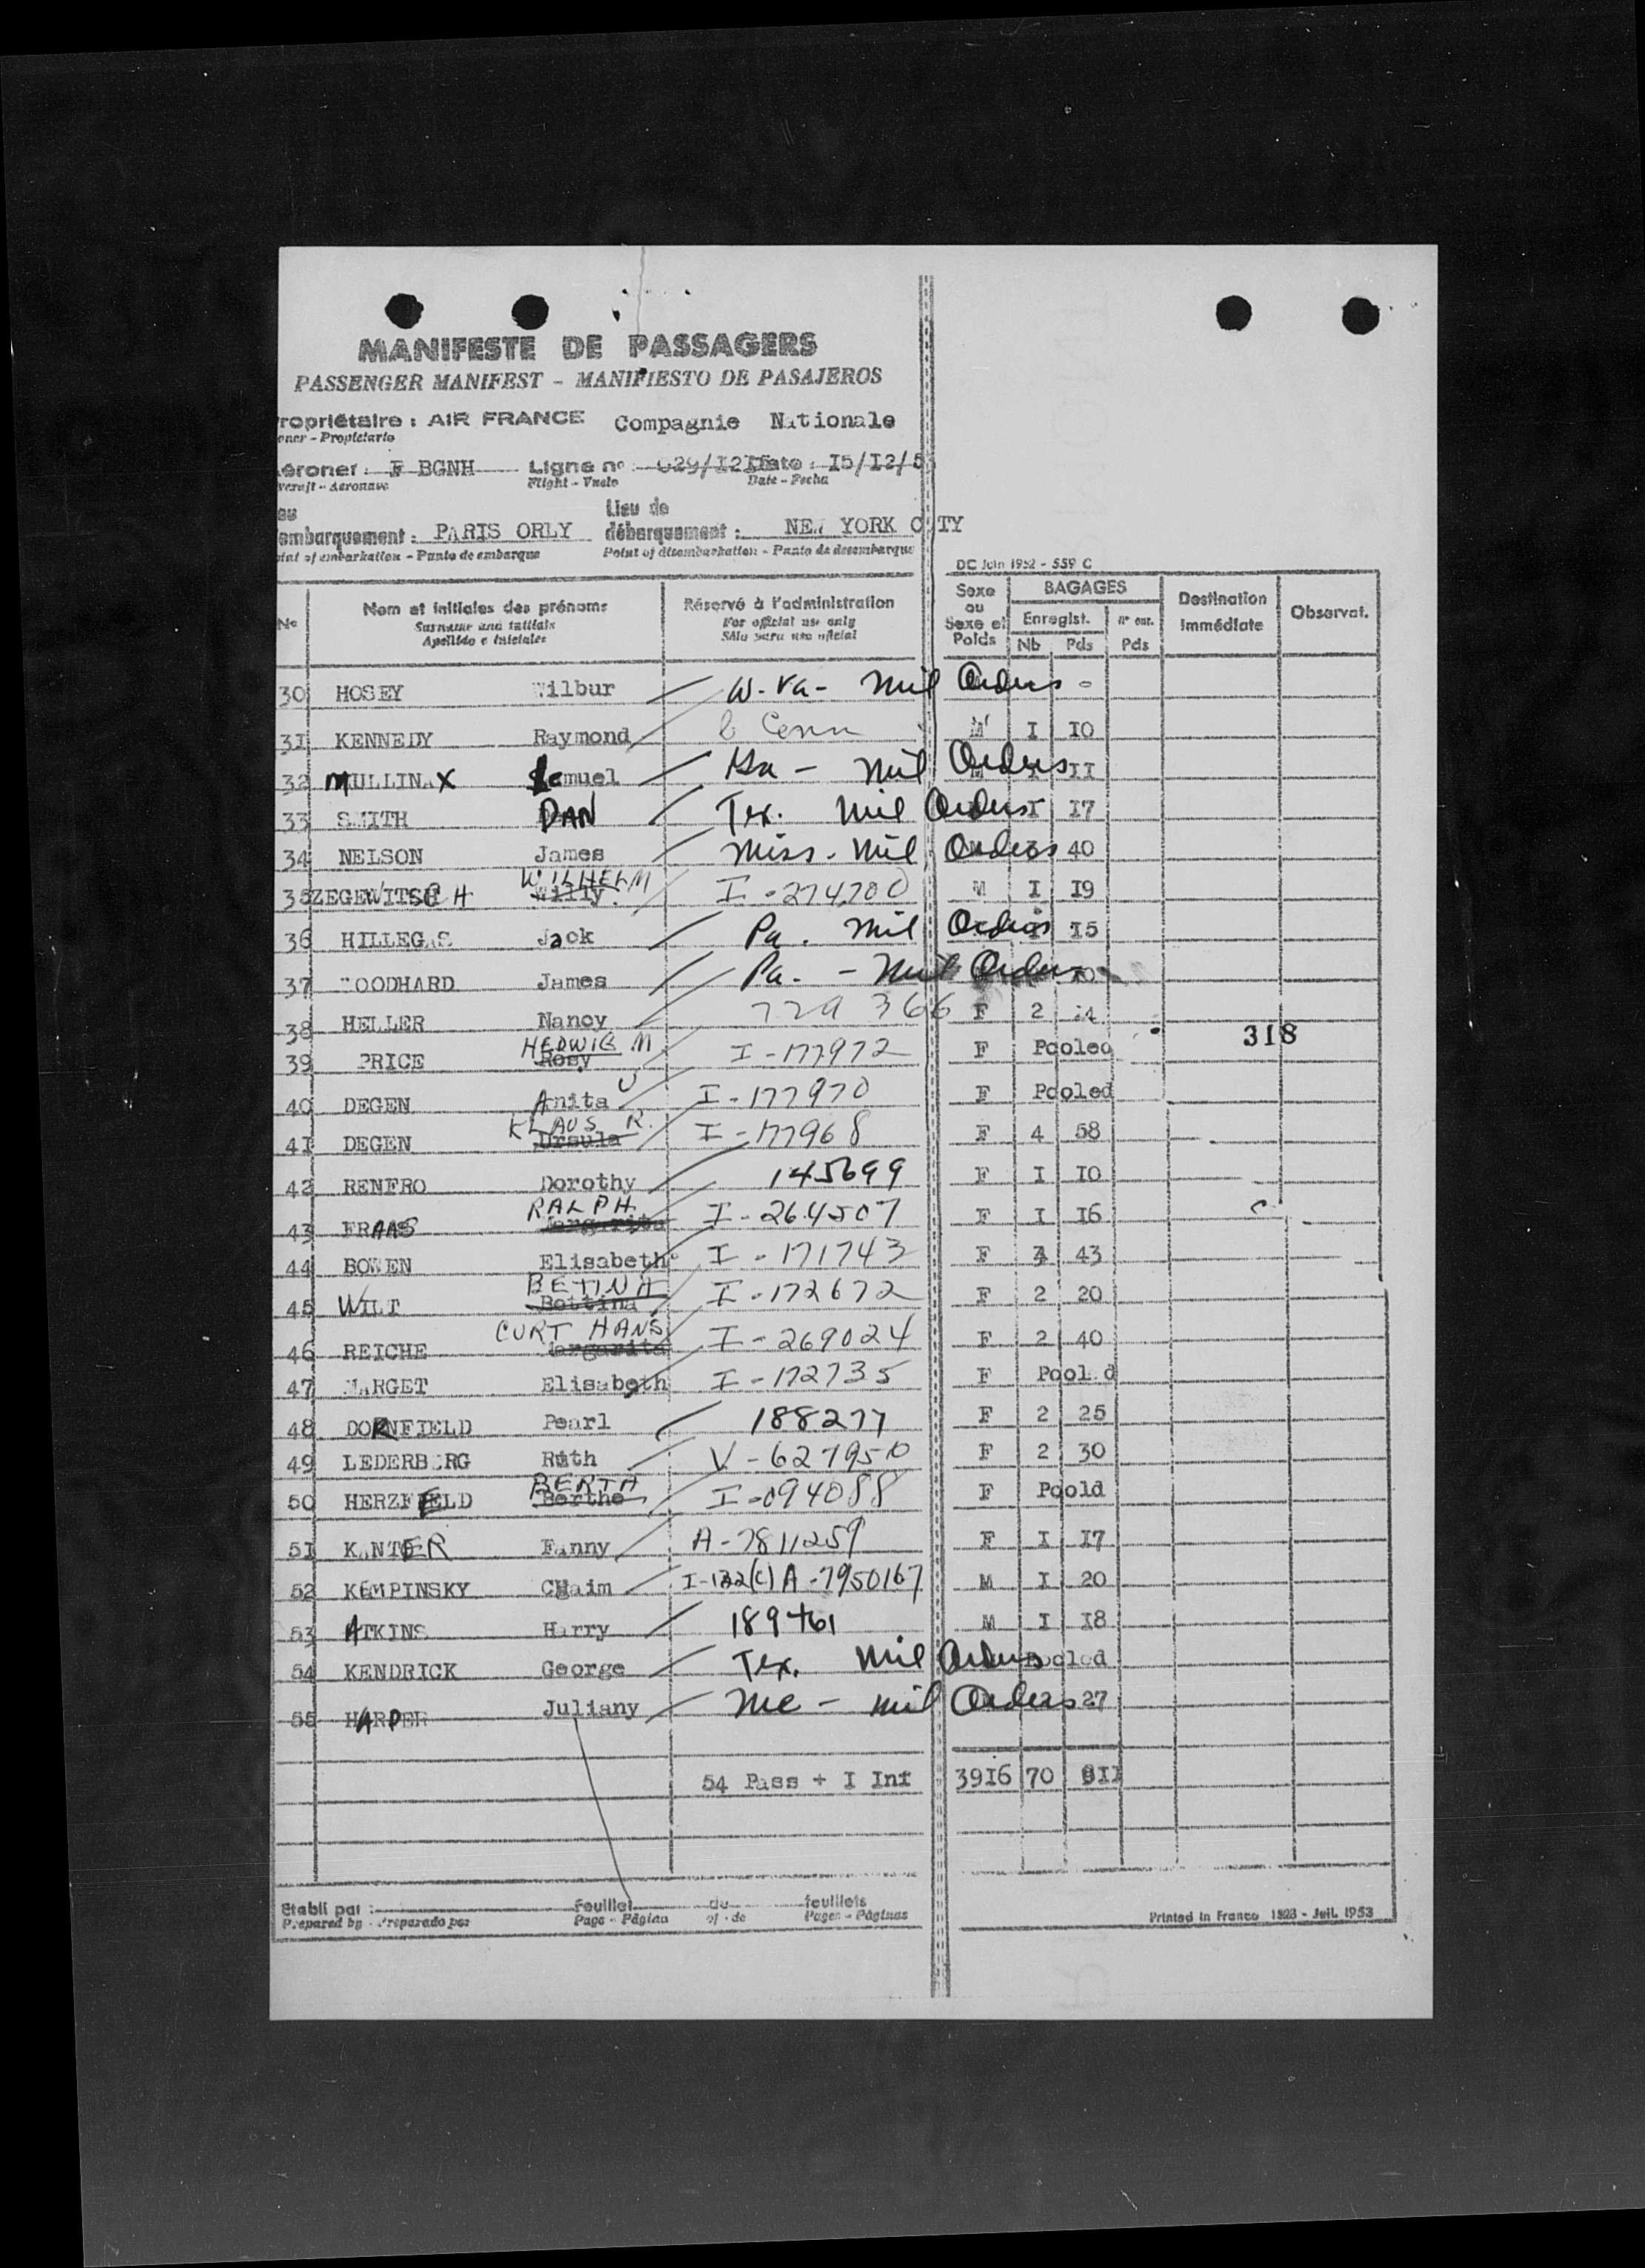 MANIFESTE DE PASSAGERS
PASSENGER MANIFEST - MANIFIESTO DE PASAJEROS
ropriétaire : AIR FRANCE Compagnie Nationale
oner - Propietario
éronef : F BGNH Ligne nº 029/I2 Date : I5/I2/5
Flight - Vuelo Date - Fecha
Lieu de
embarquement : PARIS ORLY débarquement : NEW YORK C TY
int of embarkation - Punto de embarque Point of disembarkation - Punto de desembarque
DC Juin 1952 - 559 C
Nº Nom et initiales des prénoms Réservé à l'administration Sexe ou Sexe et Poids BAGAGES Destination immédiate Observat.
Surname and initials For official use only Enregist. Nº enr.
Apellido e iniciales Sólo para uso oficial Nb Pds Pds
30 HOSEY Wilbur W. Va - Mil Orders -
3I KENNEDY Raymond M I I0
32 MULLINAX Lemuel Mil Orders II
33 SMITH DAN Tex. Mil Orders I I7
34 NELSON James Miss. Mil Orders 40
35 ZEGEWITSCH WILHELM Willy I-274700 M I I9
36 HILLEGAS Jack Pa. Mil Orders I5
37 OODHARD James Pa. - Mil Orders
38 HELLER Nancy 729 366 F 2 4
39 PRICE HEDWIG M Rosy I-177972 F Pooled
318
40 DEGEN Anita I-177970 F Pooled
4I DEGEN KLAUS R. Ursula I-177968 F 4 58
42 RENFRO Dorothy 145699 F I I0
43 FRAAS RALPH Margarita I-264507 F I I6
44 BOWEN Elisabeth I-171743 F 43
45 WILT BETINA Bettina I-172672 F 2 20
46 REICHE CURT HANS Margarita I-269024 F 2 40
47 MARGET Elisabeth I-172735 F Pool d
48 DORNFIELD Pearl 188277 F 2 25
49 LEDERBERG Ruth V-627950 F 2 30
50 HERZFELD BERTA Berthe I-094088 F Poold
5I KANTER Fanny A-7811259 F I I7
52 KEMPINSKY CHaim I-132(c) A-7950167 M I 20
53 ATKINS Harry 189461 M I I8
54 KENDRICK George Tex. Mil Orders Pooled
55 HARPER Juliany Me - Mil Orders 2 27
54 Pass + I Inf 39I6 70 9II
Etabli par : Feuillet de feuillets
Prepared by - Preparado por Page - Página of - de Pages - Páginas
Printed in France 1523 - Juil. 1953